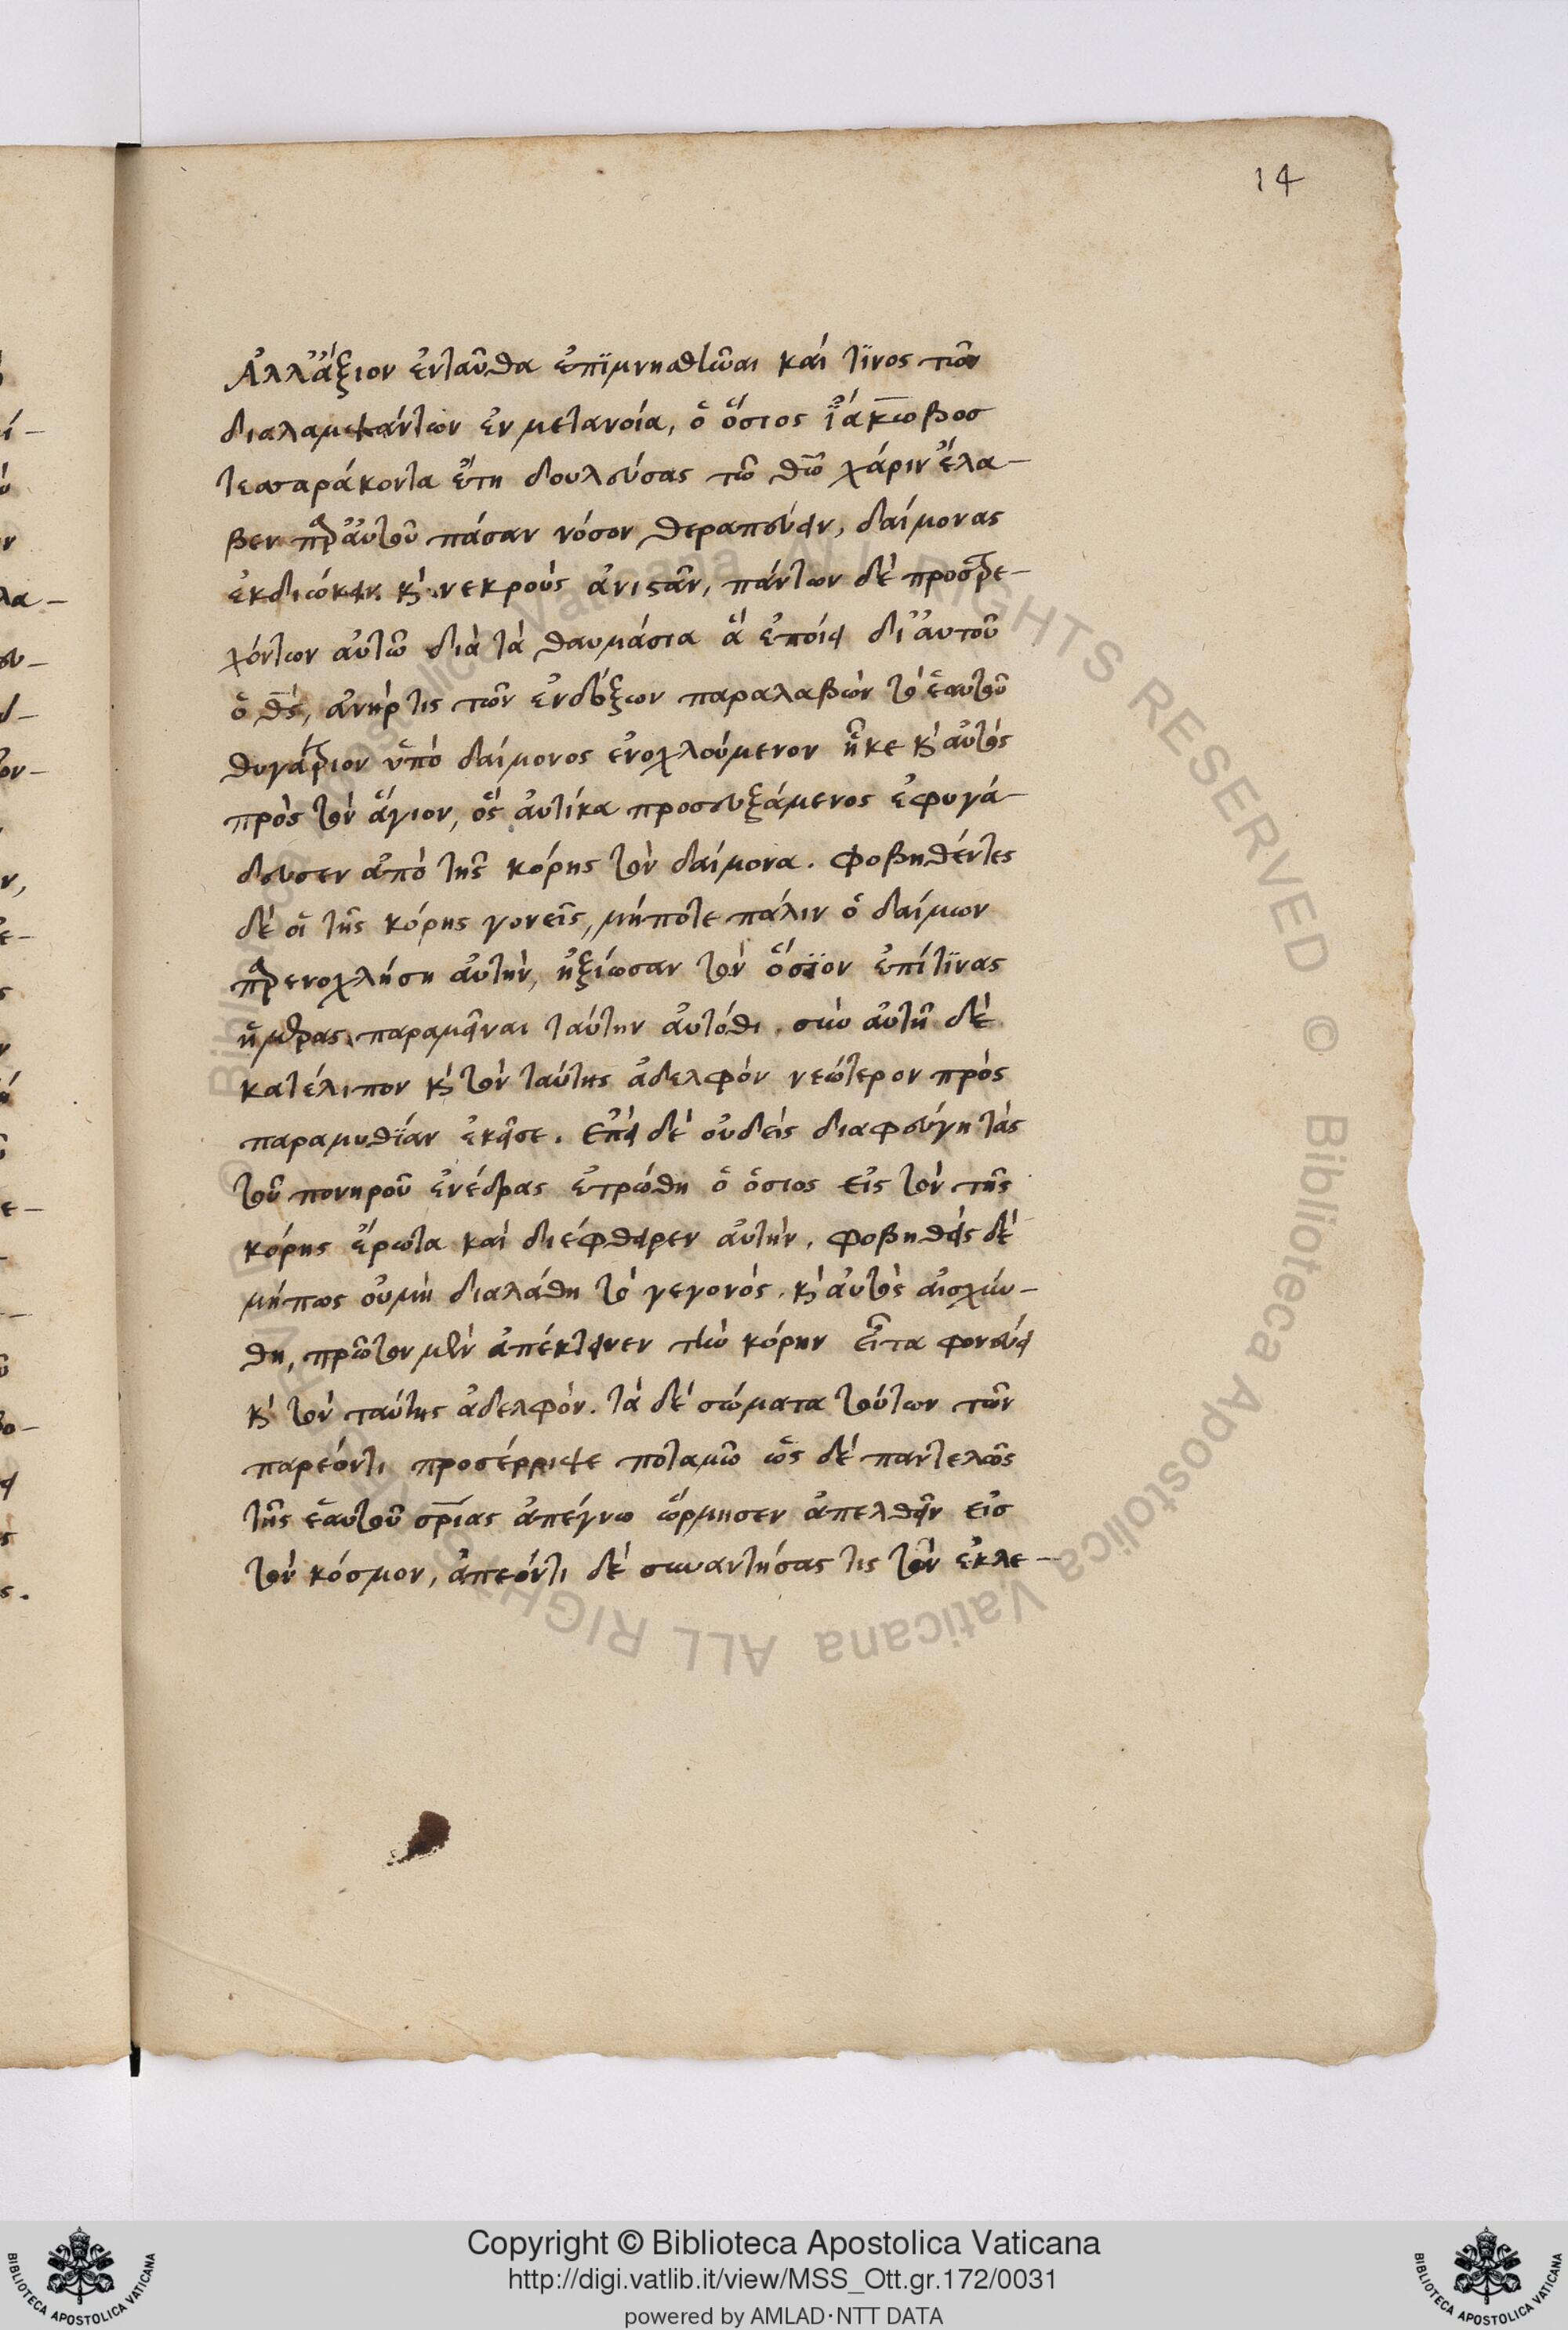 14
Ἀλλἄξιον ἐνταῦθα ἐπϊμνησθῶναι καί τϊνος τῶν
διαλαμψάντων ἐν μετανοία, ὁ ὅσιος ἰάκωβοσ
τεσσαράκοντα ἔτη δουλεύσας τῶ θῶ χάριν ἔλα-
βεν πρ ἀυτοῦ πάσαν νόσον θεραπεύειν, δαίμονας
ἐκδιώκειν κ νεκροὺς ἀνιϛᾶν, πάντων δὲ προστρε-
χόντων αὐτῶ διὰ τὰ θαυμάσια ἅ ἐποίει δι ἀυτοῦ
ὁ θς, ἀνήρ τις τῶν ἐνδόξων παραλαβὼν τὸ ἑαυτοῦ
θυγάτριον ὑπό δαίμονος ἐνοχλούμενον ἧκε κ αὐτὸς
πρὸς τὸν ἅγιον, ὃς ἀυτίκα προσευξάμενος ἐφυγά-
δευσεν ἀπὸ τῆς κόρης τὸν δαίμονα. Φοβηθέντες
δέ οἱ τῆς κόρης γονεῖς, μήποτε πάλιν ὁ δαίμων
πρενοχλήση ἀυτὴν, ἠξίωσαν τὸν ὅσϊον ἐπί τϊνας
ἡμέρας παραμεῖναι ταύτην ἀυτόθι. σὺν ἀυτῆ δὲ
κατέλιπον κ τὸν ταύτης ἀδελφόν νεώτερον πρὸς
παραμυθϊάν ἐκεῖσε. Ἐπεὶ δὲ οὐδεὶς διαφεύγη τὰς
τοῦ πονηροῦ ἐνέδρας ἐτρώθη ὁ ὅσιος εἰς τὸν τῆς
κόρης ἔρωτα καὶ διέφθειρεν ἀυτήν. Φοβηθεὶς δὲ
μήπως οὐμὴ διαλάθη τὸ γεγονός. κ ἀυτὸς αἰσχύν-
θη, πρῶτον μὲν ἀπέκτεινεν τὴν κόρην εἶτα φονεύει
κ τὸν ταύτης ἀδελφόν. τὰ δὲ σώματα τούτων τῶν
παρεόντι προσέρριψε ποταμῶ ὡς δέ παντελῶς
τῆς ἑαυτοῦ σρίας ἀπέγνω ὥρμησεν ἀπελθεῖν εἰσ
τὸν κόσμον, ἀπεόντι δέ συναντήσας τις τῶν ἐκλε-
Copyright © Biblioteca Apostolica Vaticana
http://digi.vatlib.it/view/MSS_Ott.gr.172/0031
powered by AMLAD·NTT DATA